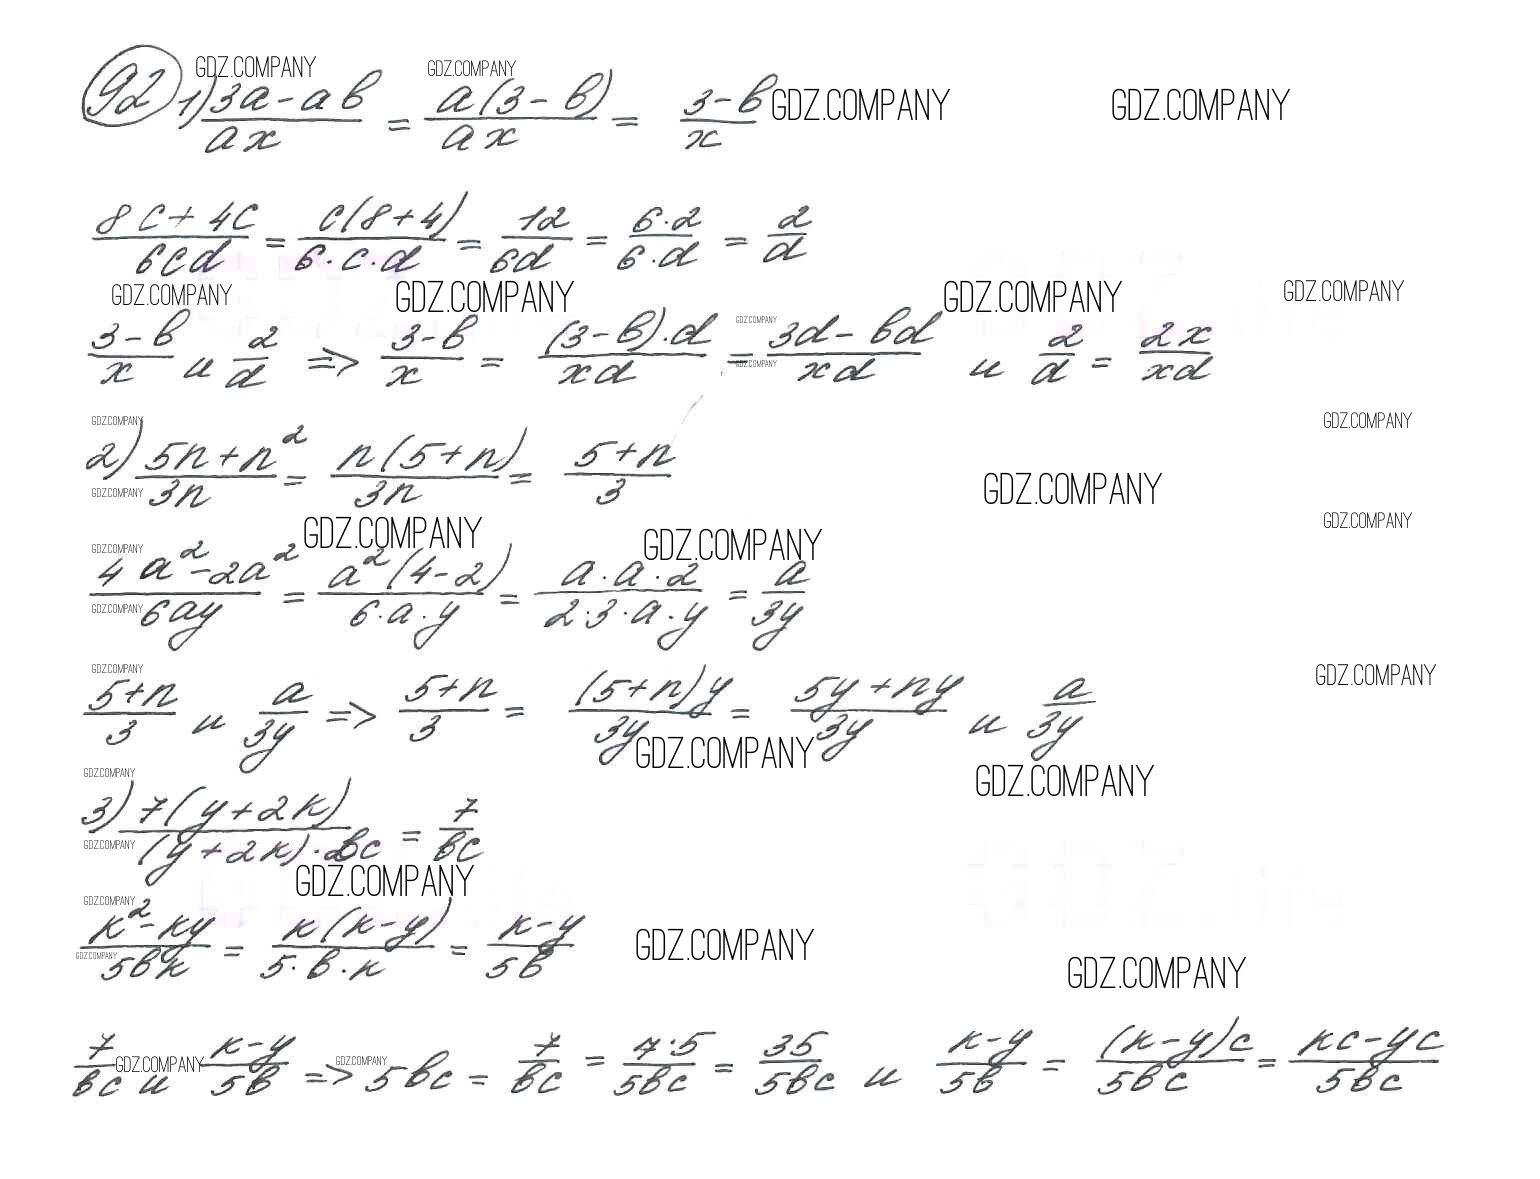 GDZ.COMPANY GDZ.COMPANY
92 1) (3a - ab)/(ax) = (a(3 - b))/(ax) = (3 - b)/x GDZ.COMPANY GDZ.COMPANY
(8c + 4c)/(6cd) = (c(8 + 4))/(6 · c · d) = 12/(6d) = (6 · 2)/(6 · d) = 2/d
GDZ.COMPANY GDZ.COMPANY GDZ.COMPANY GDZ.COMPANY
GDZ.COMPANY
(3 - b)/x и 2/d => (3 - b)/x = ((3 - b) · d)/(xd) = (3d - bd)/(xd) и 2/d = (2x)/(xd)
GDZ.COMPANY
GDZ.COMPANY GDZ.COMPANY
2) (5n + n²)/(3n) = (n(5 + n))/(3n) = (5 + n)/3
GDZ.COMPANY GDZ.COMPANY
GDZ.COMPANY GDZ.COMPANY GDZ.COMPANY
GDZ.COMPANY
(4a² - 2a²)/(6ay) = (a²(4 - 2))/(6 · a · y) = (a · a · 2)/(2 · 3 · a · y) = a/(3y)
GDZ.COMPANY
GDZ.COMPANY GDZ.COMPANY
(5 + n)/3 и a/(3y) => (5 + n)/3 = ((5 + n)y)/(3y) = (5y + ny)/(3y) и a/(3y)
GDZ.COMPANY
GDZ.COMPANY GDZ.COMPANY
3) (7(y + 2k))/((y + 2k) · bc) = 7/(bc)
GDZ.COMPANY
GDZ.COMPANY
GDZ.COMPANY
(k² - ky)/(5bk) = (k(k - y))/(5 · b · k) = (k - y)/(5b) GDZ.COMPANY
GDZ.COMPANY GDZ.COMPANY
7/(bc) и (k - y)/(5b) => 5bc = 7/(bc) = (7 · 5)/(5bc) = 35/(5bc) и (k - y)/(5b) = ((k - y)c)/(5bc) = (kc - yc)/(5bc)
GDZ.COMPANY GDZ.COMPANY